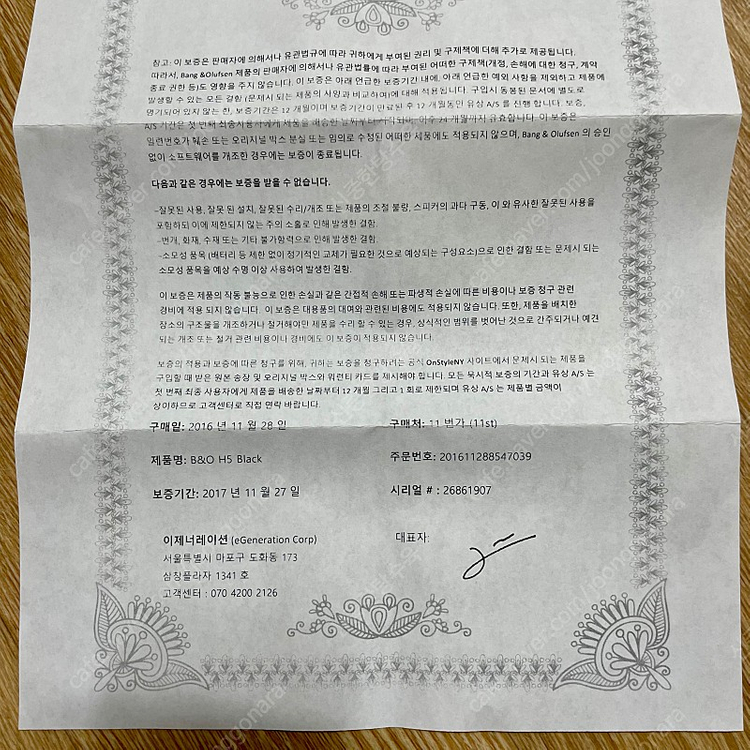 참고: 이 보증은 판매자에 의해서나 유관법규에 따라 귀하에게 부여된 권리 및 구제책에 더해 추가로 제공됩니다.
따라서, Bang &Olufsen 제품의 판매자에 의해서나 유관법률에 따라 부여된 어떠한 구제책(개정, 손해에 대한 청구, 계약
종료 권한 등)도 영향을 주지 않습니다. 이 보증은 아래 언급한 보증기간 내에, 아래 언급한 예외 사항을 제외하고 제품에
발생할 수 있는 모든 결함 (문제시 되는 제품의 사양과 비교하여)에 대해 적용됩니다. 구입시 동봉된 문서에 별도로
명기되어 있지 않는 한, 보증기간은 12 개월이며 보증기간이 만료된 후 12 개월동안 유상 A/S 를 진행 합니다. 보증,
A/S 기간은 첫 번째 최종사용자에게 제품을 배송한 날짜부터 시작되며, 이후 24 개월까지 유효합니다. 이 보증은
일련번호가 훼손 또는 오리지널 박스 분실 또는 임의로 수정된 어떠한 제품에도 적용되지 않으며, Bang & Olufsen 의 승인
없이 소프트웨어를 개조한 경우에는 보증이 종료됩니다.
다음과 같은 경우에는 보증을 받을 수 없습니다.
-잘못된 사용, 잘못 된 설치, 잘못된 수리/개조 또는 제품의 조절 불량, 스피커의 과다 구동, 이 와 유사한 잘못된 사용을
포함하되 이에 제한되지 않는 주의 소홀로 인해 발생한 결함.
-번개, 화재, 수재 또는 기타 불가항력으로 인해 발생한 결함.
-소모성 품목 (배터리 등 제한 없이 정기적인 교체가 필요한 것으로 예상되는 구성요소)으로 인한 결함 또는 문제시 되는
소모성 품목을 예상 수명 이상 사용하여 발생한 결함.
이 보증은 제품의 작동 불능으로 인한 손실과 같은 간접적 손해 또는 파생적 손실에 따른 비용이나 보증 청구 관련
경비에 적용 되지 않습니다. 이 보증은 대용품의 대여와 관련된 비용에도 적용되지 않습니다. 또한, 제품을 배치한
장소의 구조물을 개조하거나 철거해야만 제품을 수리 할 수 있는 경우, 상식적인 범위를 벗어난 것으로 간주되거나 예견
되는 개조 또는 철거 관련 비용이나 경비에도 이 보증이 적용되지 않습니다.
보증의 적용과 보증에 따른 청구를 위해, 귀하는 보증을 청구하려는 공식 OnStyleNY 사이트에서 문제시 되는 제품을
구입할 때 받은 원본 송장 및 오리지널 박스와 워런티 카드를 제시해야 합니다. 모든 묵시적 보증의 기간과 유상 A/S 는
첫 번째 최종 사용자에게 제품을 배송한 날짜부터 12 개월 그리고 1 회로 제한되며 유상 A/S 는 제품별 금액이
상이하므로 고객센터로 직접 연락 바랍니다.
구매일: 2016 년 11 월 28 일 구매처: 11 번가 (11st)
제품명: B&O H5 Black 주문번호: 201611288547039
보증기간: 2017 년 11 월 27 일 시리얼 # : 26861907
이제너레이션 (eGeneration Corp) 대표자:
서울특별시 마포구 도화동 173
삼창플라자 1341 호
고객센터 : 070 4200 2126